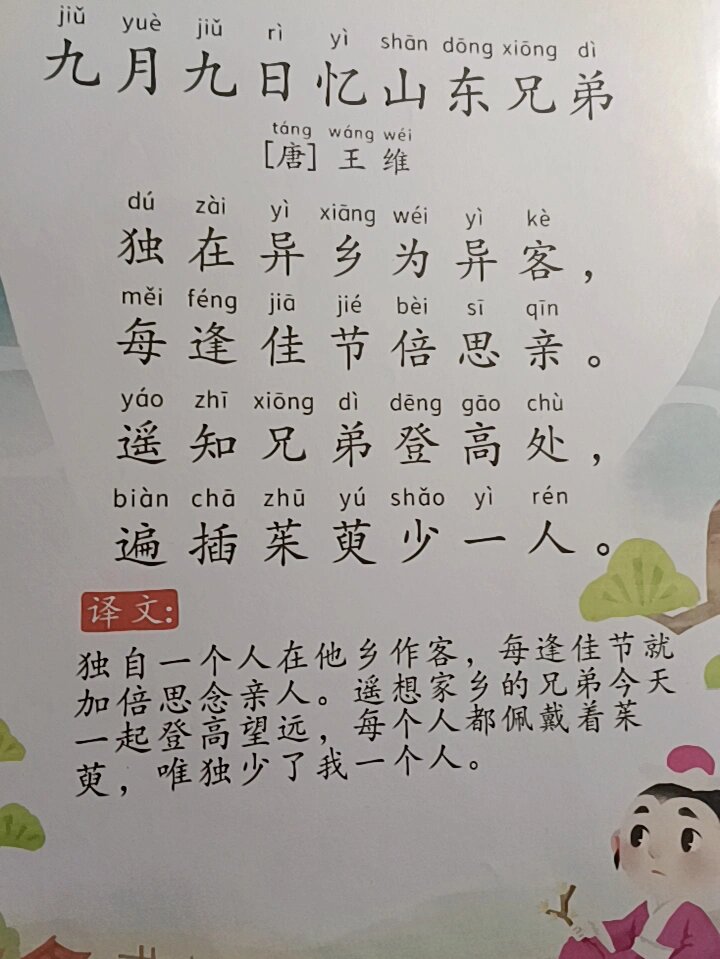 jiǔ yuè jiǔ rì yì shān dōng xiōng dì
九月九日忆山东兄弟
táng wáng wéi
[唐] 王维
dú zài yì xiāng wéi yì kè
独在异乡为异客，
měi féng jiā jié bèi sī qīn
每逢佳节倍思亲。
yáo zhī xiōng dì dēng gāo chù
遥知兄弟登高处，
biàn chā zhū yú shǎo yì rén
遍插茱萸少一人。
译文：
独自一个人在他乡作客，每逢佳节就
加倍思念亲人。遥想家乡的兄弟今天
一起登高望远，每个人都佩戴着茱
萸，唯独少了我一个人。